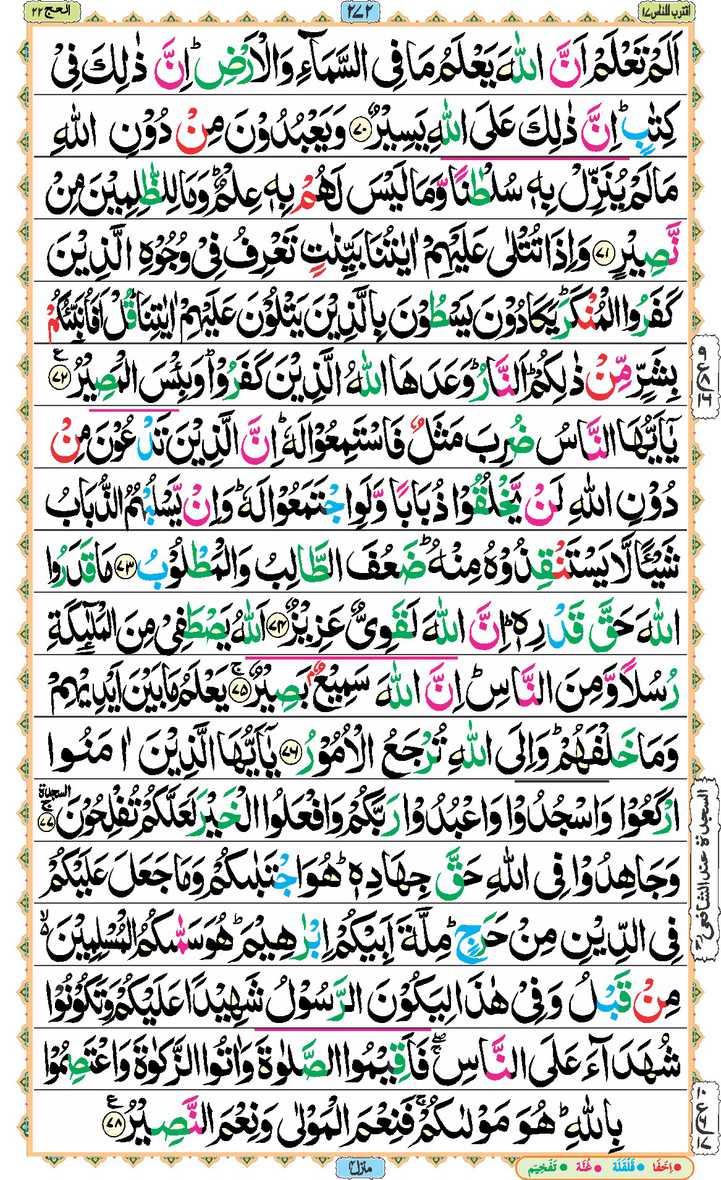 اقترب للناس ١٧
٢٧٢
الحج ٢٢
اَلَمْ تَعْلَمْ اَنَّ اللّٰهَ يَعْلَمُ مَا فِى السَّمَآءِ وَالْاَرْضِ ؕ اِنَّ ذٰلِكَ فِىْ
كِتٰبٍ ؕ اِنَّ ذٰلِكَ عَلَى اللّٰهِ يَسِيْرٌ ﴿۷۰﴾ وَيَعْبُدُوْنَ مِنْ دُوْنِ اللّٰهِ
مَا لَمْ يُنَزِّلْ بِهٖ سُلْطٰنًا وَّمَا لَيْسَ لَهُمْ بِهٖ عِلْمٌ ؕ وَمَا لِلظّٰلِمِيْنَ مِنْ
نَّصِيْرٍ ﴿۷۱﴾ وَاِذَا تُتْلٰى عَلَيْهِمْ اٰيٰتُنَا بَيِّنٰتٍ تَعْرِفُ فِىْ وُجُوْهِ الَّذِيْنَ
كَفَرُوا الْمُنْكَرَ ؕ يَكَادُوْنَ يَسْطُوْنَ بِالَّذِيْنَ يَتْلُوْنَ عَلَيْهِمْ اٰيٰتِنَا ؕ قُلْ اَفَاُنَبِّئُكُمْ
بِشَرٍّ مِّنْ ذٰلِكُمْ ؕ اَلنَّارُ ؕ وَعَدَهَا اللّٰهُ الَّذِيْنَ كَفَرُوْا ؕ وَبِئْسَ الْمَصِيْرُ ﴿۷۲﴾ ع
يٰۤاَيُّهَا النَّاسُ ضُرِبَ مَثَلٌ فَاسْتَمِعُوْا لَهٗ ؕ اِنَّ الَّذِيْنَ تَدْعُوْنَ مِنْ
دُوْنِ اللّٰهِ لَنْ يَّخْلُقُوْا ذُبَابًا وَّلَوِ اجْتَمَعُوْا لَهٗ ؕ وَاِنْ يَّسْلُبْهُمُ الذُّبَابُ
شَيْـًٔا لَّا يَسْتَنْقِذُوْهُ مِنْهُ ؕ ضَعُفَ الطَّالِبُ وَالْمَطْلُوْبُ ﴿۷۳﴾ مَا قَدَرُوا
اللّٰهَ حَقَّ قَدْرِهٖ ؕ اِنَّ اللّٰهَ لَقَوِىٌّ عَزِيْزٌ ﴿۷۴﴾ اَللّٰهُ يَصْطَفِىْ مِنَ الْمَلٰٓئِكَةِ
رُسُلًا وَّمِنَ النَّاسِ ؕ اِنَّ اللّٰهَ سَمِيْعٌۢ بَصِيْرٌ ۚ ﴿۷۵﴾ يَعْلَمُ مَا بَيْنَ اَيْدِيْهِمْ
وَمَا خَلْفَهُمْ ؕ وَاِلَى اللّٰهِ تُرْجَعُ الْاُمُوْرُ ﴿۷۶﴾ يٰۤاَيُّهَا الَّذِيْنَ اٰمَنُوا
ارْكَعُوْا وَاسْجُدُوْا وَاعْبُدُوْا رَبَّكُمْ وَافْعَلُوا الْخَيْرَ لَعَلَّكُمْ تُفْلِحُوْنَ ۚ ﴿۷۷﴾ السجدة
وَجَاهِدُوْا فِى اللّٰهِ حَقَّ جِهَادِهٖ ؕ هُوَ اجْتَبٰىكُمْ وَمَا جَعَلَ عَلَيْكُمْ
فِى الدِّيْنِ مِنْ حَرَجٍ ؕ مِلَّةَ اَبِيْكُمْ اِبْرٰهِيْمَ ؕ هُوَ سَمّٰىكُمُ الْمُسْلِمِيْنَ ۙ
مِنْ قَبْلُ وَفِىْ هٰذَا لِيَكُوْنَ الرَّسُوْلُ شَهِيْدًا عَلَيْكُمْ وَتَكُوْنُوْا
شُهَدَآءَ عَلَى النَّاسِ ۖۚ فَاَقِيْمُوا الصَّلٰوةَ وَاٰتُوا الزَّكٰوةَ وَاعْتَصِمُوْا
بِاللّٰهِ ؕ هُوَ مَوْلٰىكُمْ ۚ فَنِعْمَ الْمَوْلٰى وَنِعْمَ النَّصِيْرُ ﴿۷۸﴾ ع
السجدة عند الشافعي
منزل ٤
اِخْفَا
قَلْقَلَة
غُنَّة
تَفْخِيْم